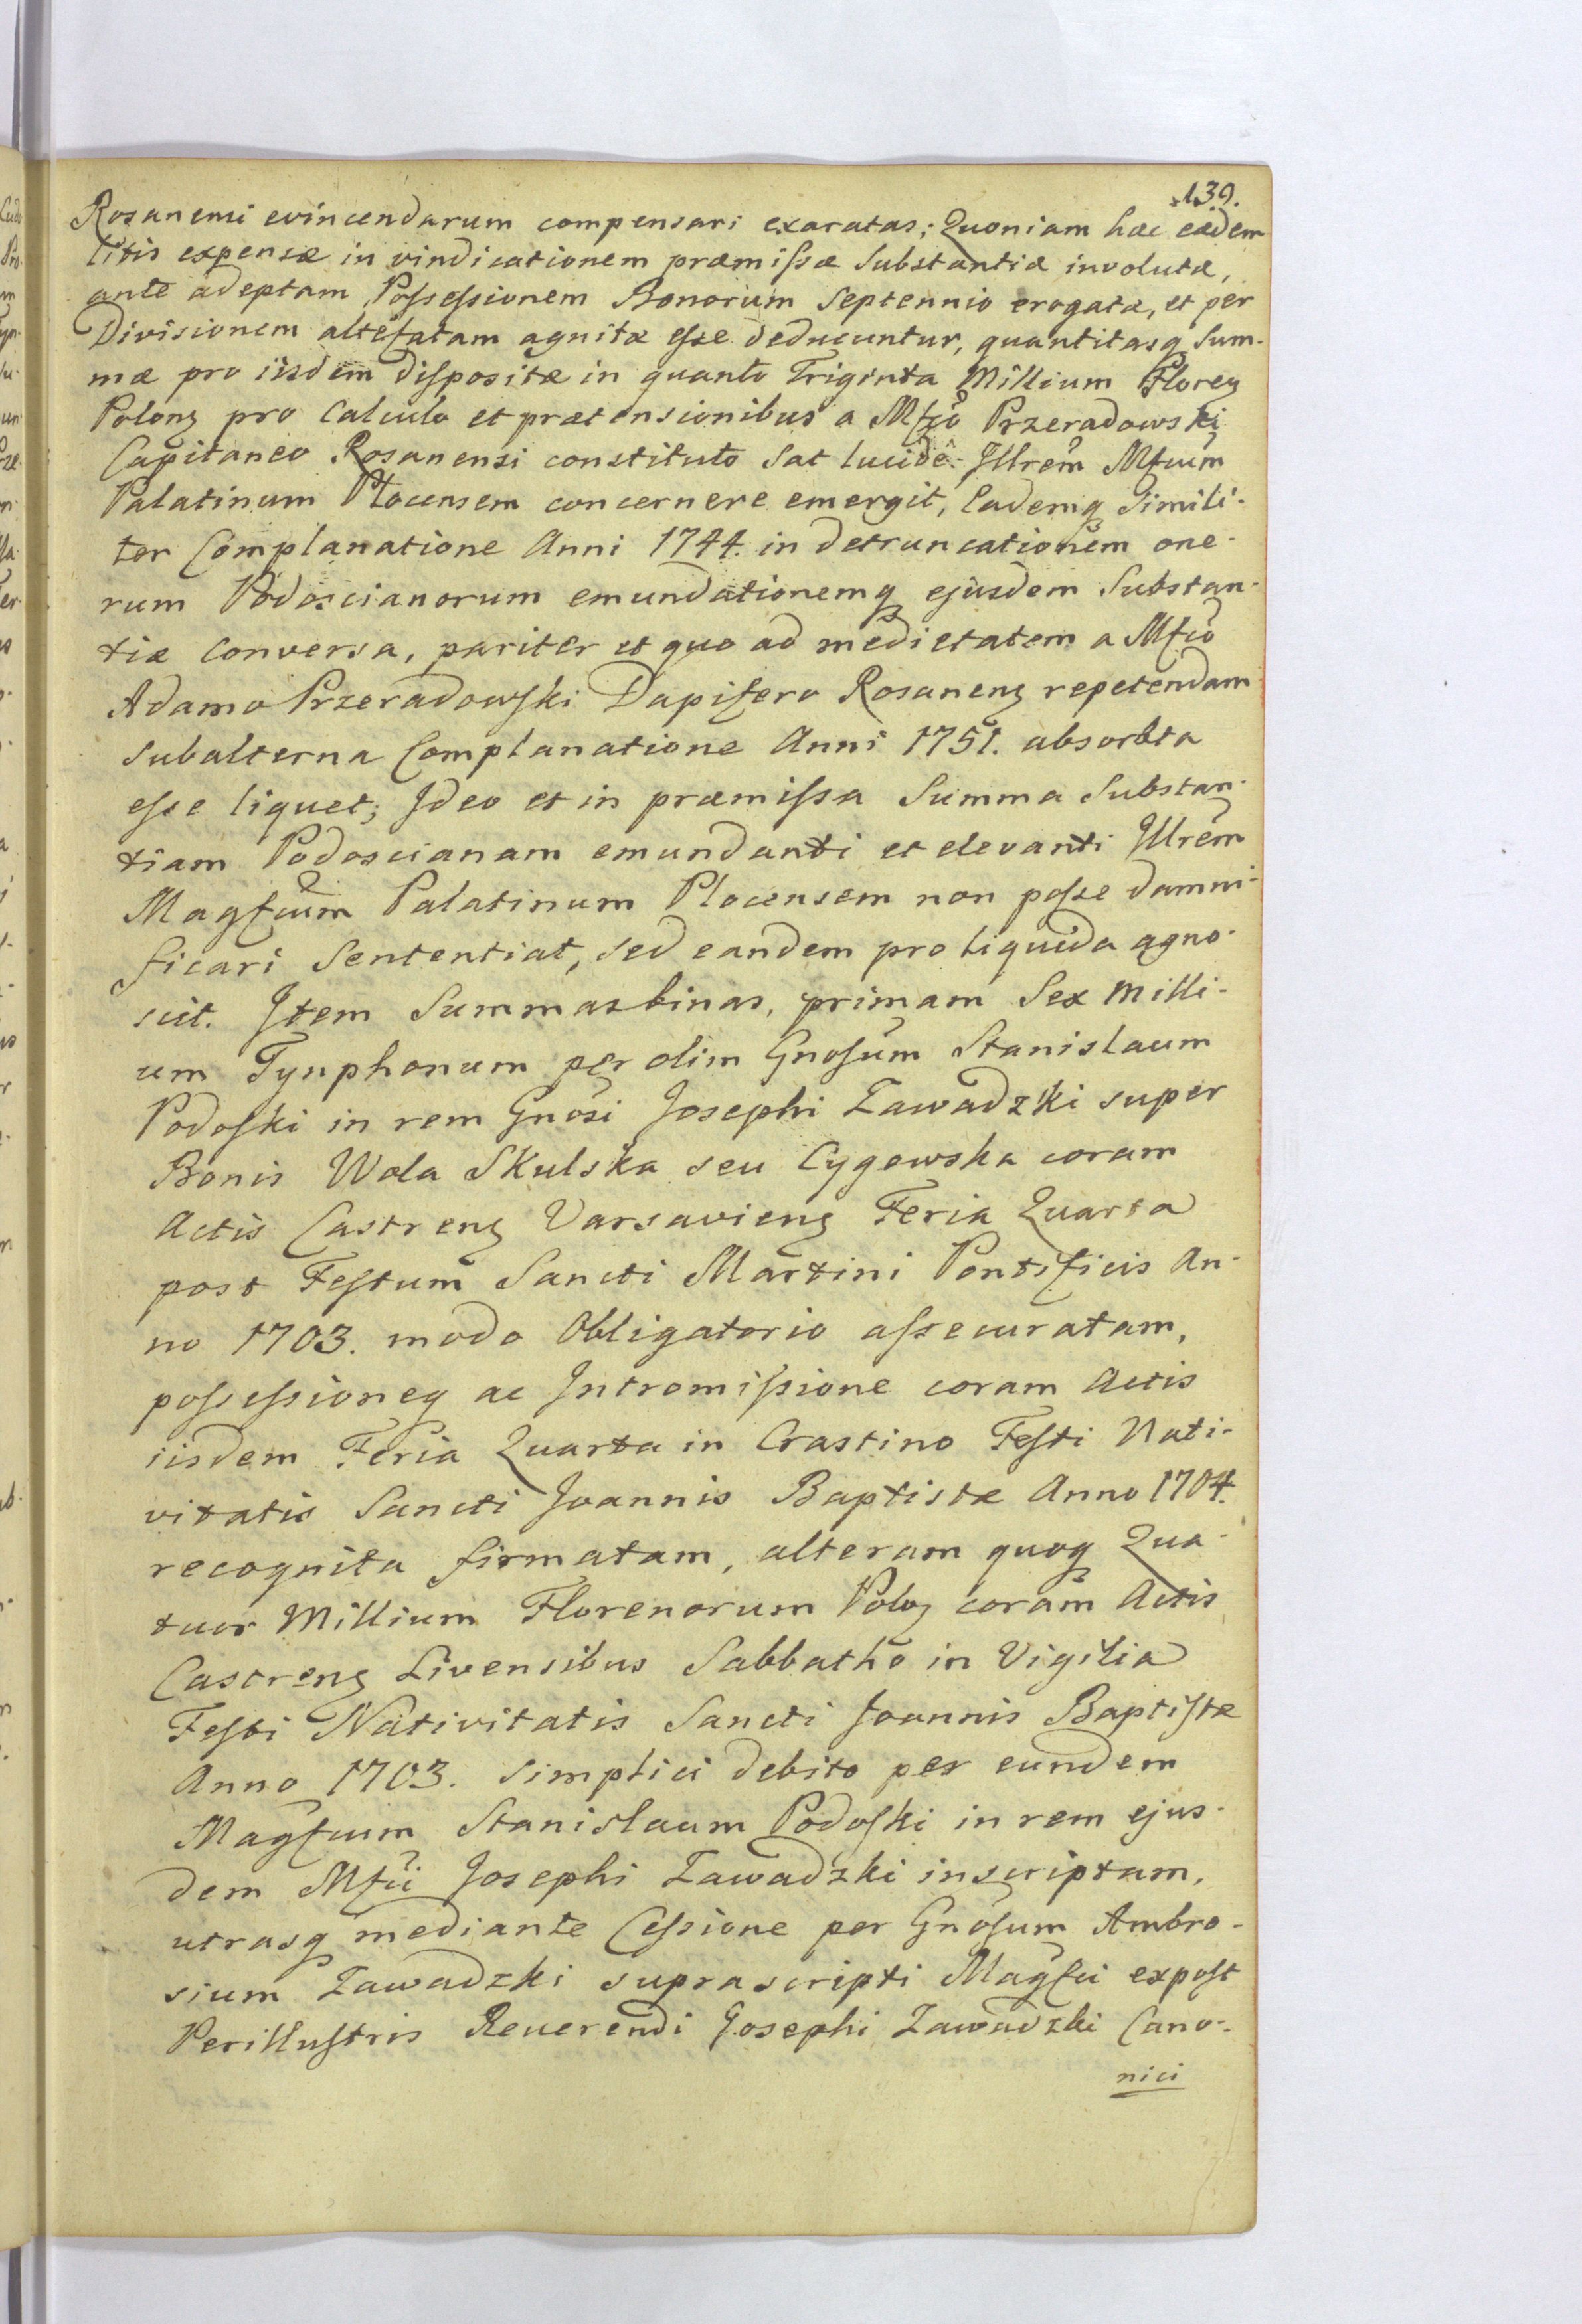 139.
Rosanensi evincendarum compensari exaratas; Quoniam hæ eædem
litis expensæ in vindicationem præmissæ Substantiæ involutæ,
ante adeptam Possessionem Bonorum Septennio erogatæ, et per
Divisionem altefatam agnitæ esse deducuntur, quantitasq Sum-
mæ pro iisdem dispositæ in quanto Triginta Millium Floren
Polon pro Calculo et prætensionibus a Mfco Przeradowski
Capitaneo Rosanensi constituto Sat lucide Illrem Mfcum
Palatinum Plocensem concernere emergit, Eademq Simili-
ter Complanatione Anni 1744. in detruncationem one-
rum Podoscianorum emundationemq ejusdem Substan-
tiæ conversa, pariter et quo ad medietatem a Mfco
Adamo Przeradowski Dapifero Rosanens repetendam
subalterna Complanatione Anni 1751. absorbta
esse liquet; Ideo et in præmissa Summa Substan-
tiam Podoscianam emundanti et elevanti Illrem
Magfcum Palatinum Plocensem non posse damni-
ficari Sententiat, sed eandem pro liquida agno-
scit. Item Summas binas, primam Sex Milli-
um Tynphonum per olim Gnosum Stanislaum
Podoski in rem Gnosi Josephi Zawadzki super
Bonis Wola Skulska seu Cygowska coram
Actis Castrens Varsaviens Feria Quarta
post Festum Sancti Martini Pontificis An-
no 1703. modo Obligatorio assecuratam,
possessioneq ac Intromissione coram Actis
iisdem Feria Quarta in Crastino Festi Nati-
vitatis Sancti Joannis Baptistæ Anno 1704.
recognita firmatam, alteram quoq Qua-
tuor Millium Florenorum Polon coram Actis
Castrens Livensibus Sabbatho in Vigilia
Festi Nativitatis Sancti Joannis Baptistæ
Anno 1703. simplici debito per eundem
Magfcum Stanislaum Podoski in rem ejus-
dem Mfci Josephi Zawadzki inscriptam,
utrasq mediante Cessione per Gnosum Ambro-
sium Zawadzki suprascripti Magfci expost
Perillustris Reverendi Josephi Zawadzki Cano-
nici